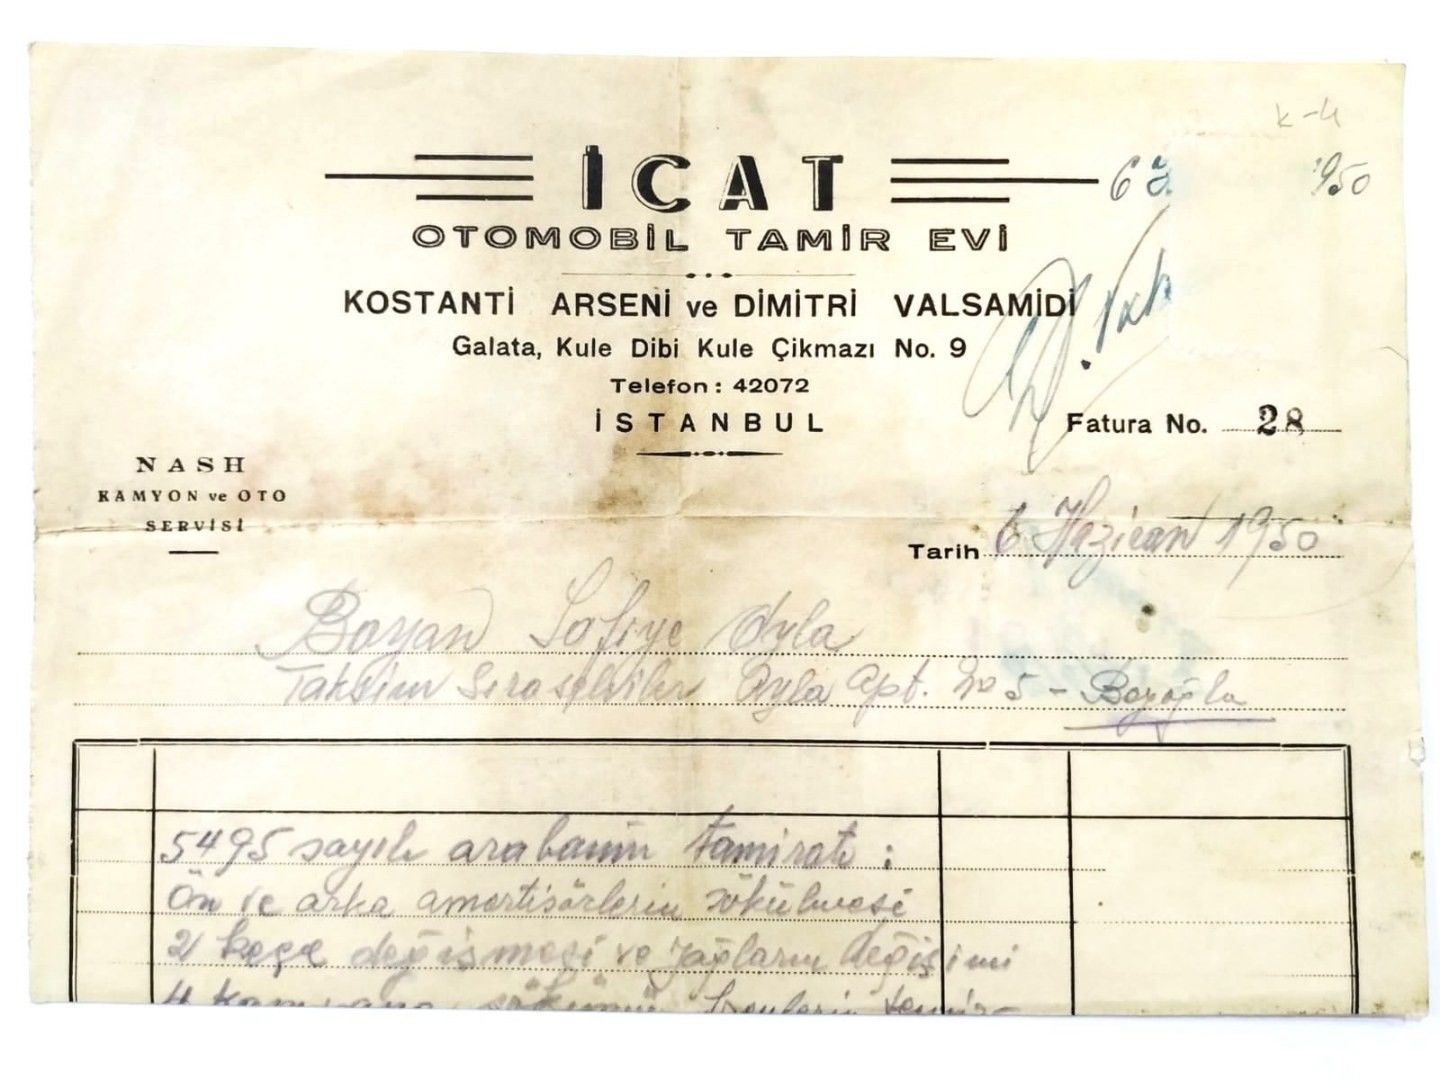 K-4
İCAT
6 1950
OTOMOBİL TAMİR EVİ
KOSTANTİ ARSENİ ve DİMİTRİ VALSAMİDİ
Galata, Kule Dibi Kule Çikmazı No. 9
Telefon : 42072
İSTANBUL
Fatura No. 28
NASH
KAMYON ve OTO
SERVİSİ
Tarih 6 Haziran 1950
Bayan Safiye Ayla
Taksim Sıraselviler Ayla Apt. No 5 - Beyoğlu
5495 sayılı arabanın tamiratı :
Ön ve arka amortisörlerin sökülmesi
2 keçe değişmesi ve yağların değişimi
4 kampana